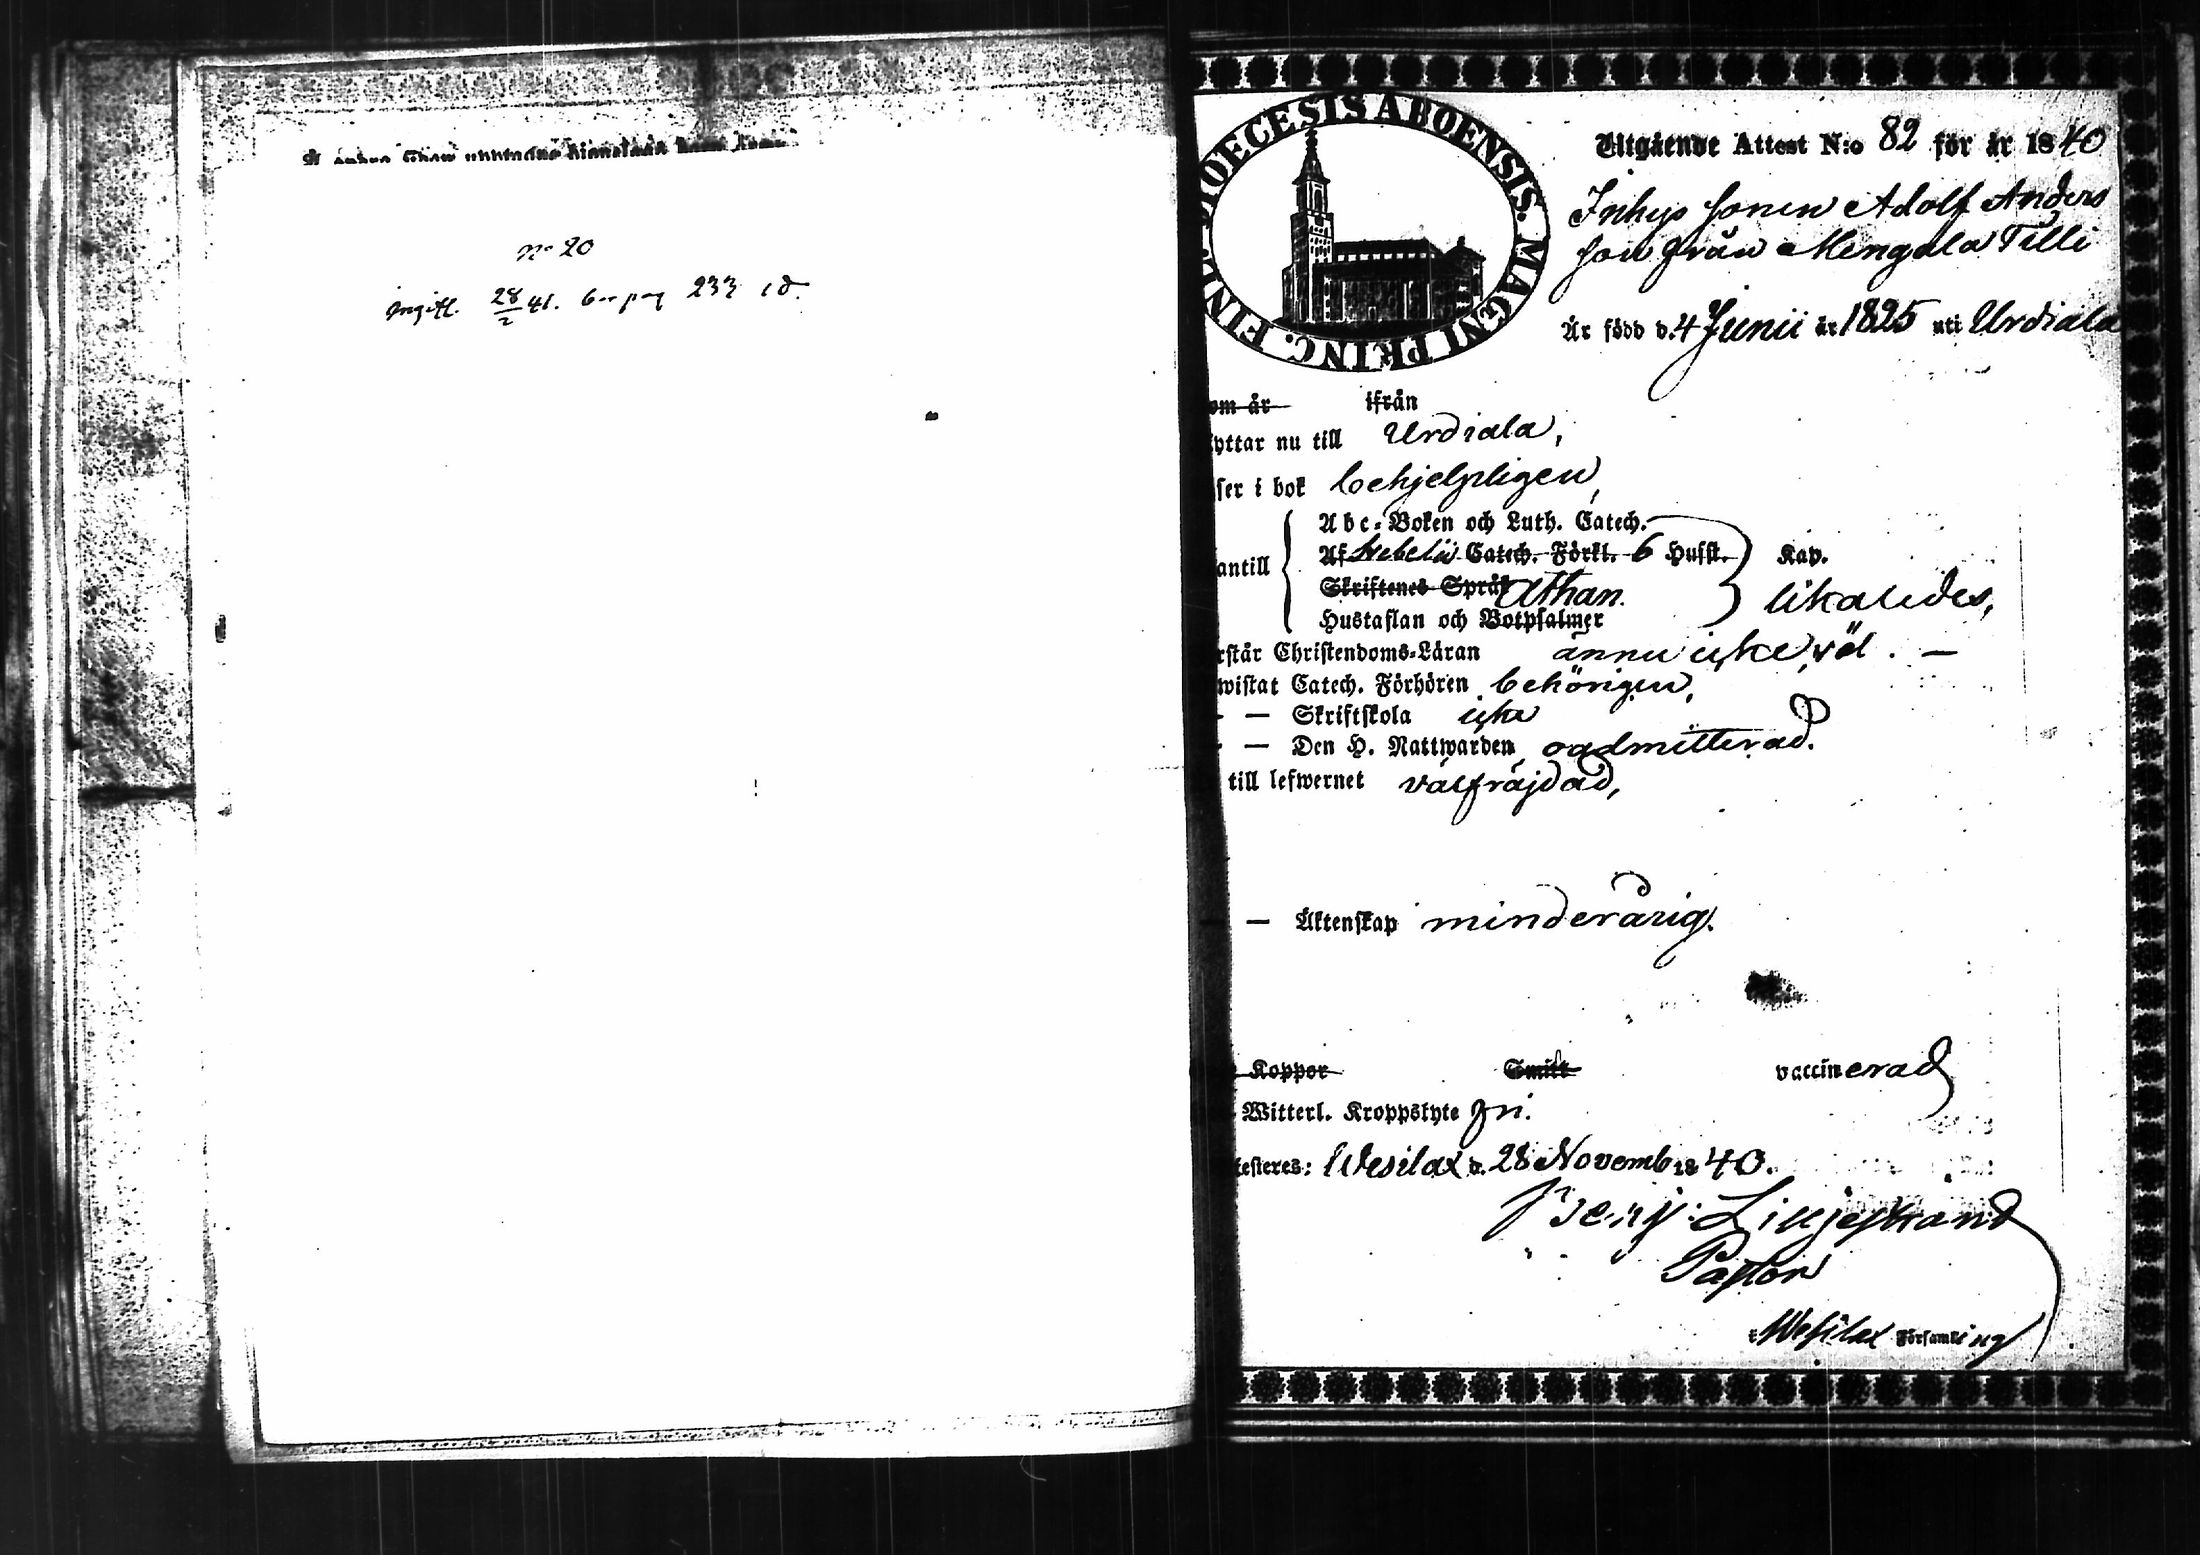 No 20
ingifl. 28/2 41. pag 233
DIOECESIS ABOENSIS. MAGNI PRINC. FINL.
Utgående Attest N:o 82 för år 1840
Inhys sonen Adolf Anders
son från Mengala Tilli
Är född d. 4 Junii år 1825 uti Urdiala
om år ifrån
yttar nu till Urdiala,
ser i bok behjelpligen,
Abc-Boken och Luth. Catech.
Af Svebelii Catech. Förkl. 6 Hufst. Kap.
antill
Skriftenes Språk Athan. likaledes,
Hustaflan och Botpsalmer
rstår Christendoms-Läran ännu icke väl. —
wistat Catech. Förhören behörigen,
— Skriftskola icke
— Den H. Nattwarden oadmitterad.
till lefwernet välfräjdad,
— Äktenskap minderårig.
Koppor Smitt vaccinerad
Witterl. Kroppslyte fri.
testeres: Wesilax d. 28 Novemb 1840.
Benj: Liljestrand
Pastor
i Wesilax Församling